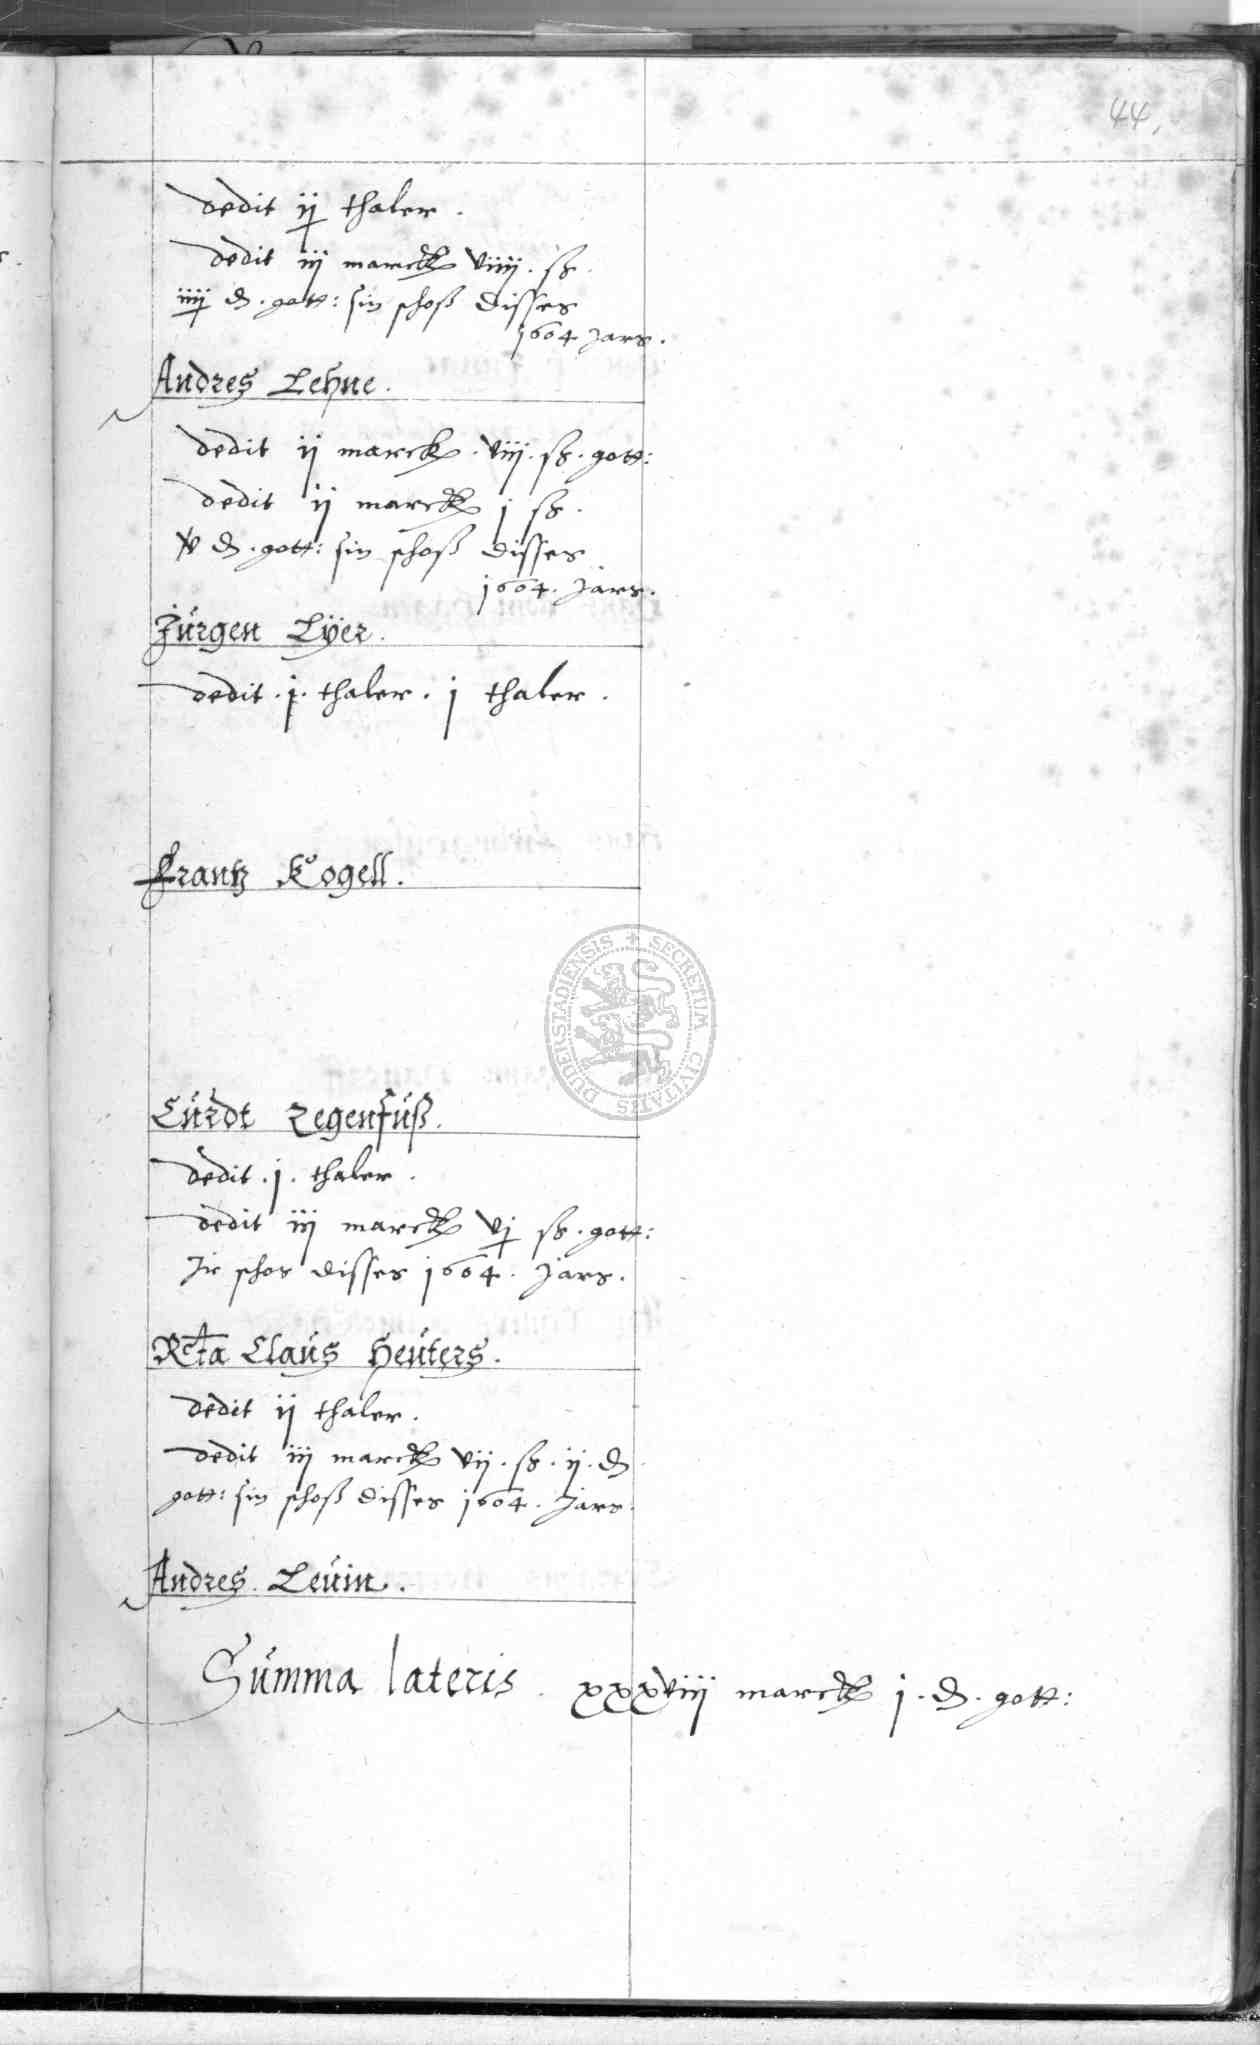 44.
dedit ij thaler.
dedit iij marck viiij. ß.
iiij d. gott: sin schoß disses
1604 Jars.
Andres Lehne.
dedit ij marck. viij. ß. gott:
dedit ij marck j ß.
v d. gott: sin schoß disses
1604. Jars.
Jürgen Lÿer.
dedit. j. thaler. j thaler.
Frantz Kogell.
DUDERSTADIENSIS + SECRETUM CIVITATIS
Cürdt Regenfüß.
dedit. j. thaler.
dedit iij marck vj ß. gott:
Ir schos disses 1604. Jars.
Rcta Claüs Heüters.
dedit ij thaler.
dedit iij marck vij. ß. ij. d
gott: sin schoß disses 1604. Jars.
Andres. Leüin.
Sümma lateris. xxxviij marck j. d. gott: